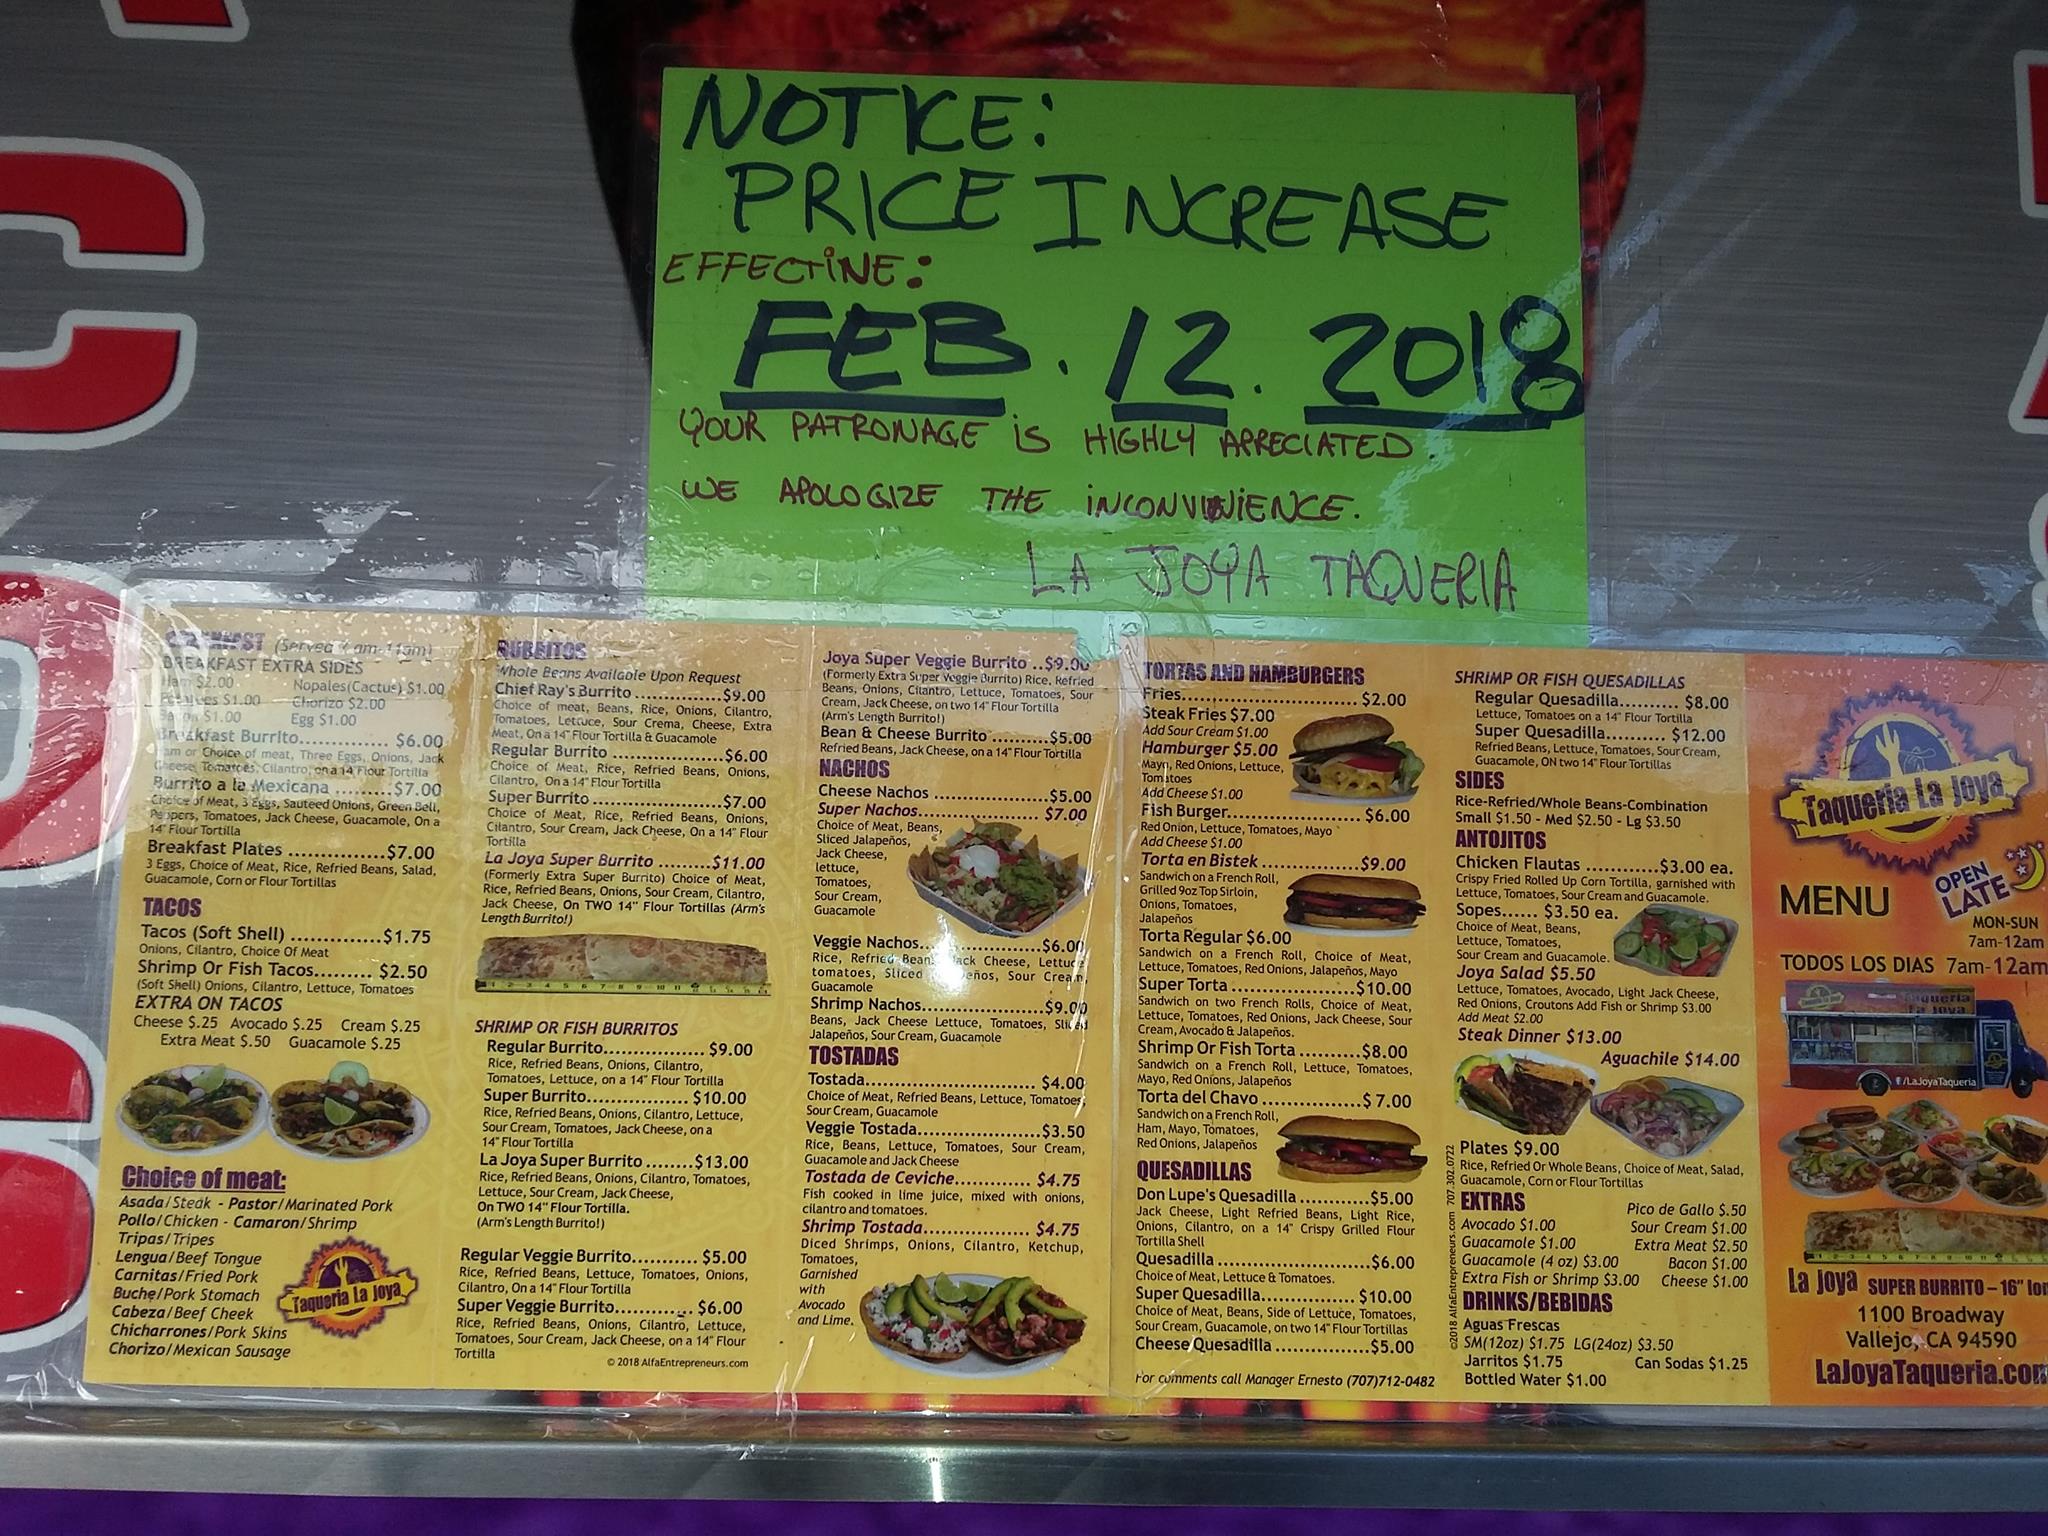 NOTICE:
PRICE INCREASE
EFFECTINE:
FEB. 12. 2018
YOUR PATRONAGE iS HIGHLY APRECIATED.
WE APOLOGIZE THE iNCONVINiENCE.
LA JOYA TAQUERIA
BREAKFAST (Served 7am-11am)
BREAKFAST EXTRA SIDES
Ham $2.00 Nopales(Cactus) $1.00
$1.00 Chorizo $2.00
Bacon $1.00 Egg $1.00
Breakfast Burrito............. $6.00
Ham or Choice of meat, Three Eggs, Onions, Jack
Cheese, Tomatoes, Cilantro, on a 14 Flour Tortilla
Burrito a la Mexicana .........$7.00
Choice of Meat, 3 Eggs, Sauteed Onions, Green Bell,
Peppers, Tomatoes, Jack Cheese, Guacamole, On a
14" Flour Tortilla
Breakfast Plates ...............$7.00
3 Eggs, Choice of Meat, Rice, Refried Beans, Salad,
Guacamole, Corn or Flour Tortillas
TACOS
Tacos (Soft Shell) ..............$1.75
Onions, Cilantro, Choice Of Meat
Shrimp Or Fish Tacos......... $2.50
(Soft Shell) Onions, Cilantro, Lettuce, Tomatoes
EXTRA ON TACOS
Cheese $.25 Avocado $.25 Cream $.25
Extra Meat $.50 Guacamole $.25
Choice of meat:
Asada/Steak - Pastor/Marinated Pork
Pollo/Chicken - Camaron/Shrimp
Tripas/Tripes
Lengua/Beef Tongue
Carnitas/Fried Pork
Buche/Pork Stomach
Cabeza/Beef Cheek
Chicharrones/Pork Skins
Chorizo/Mexican Sausage
Taqueria La Joya
BURRITOS
Whole Beans Available Upon Request
Chief Ray's Burrito ..............$9.00
Choice of meat, Beans, Rice, Onions, Cilantro,
Tomatoes, Lettuce, Sour Crema, Cheese, Extra
Meat, On a 14" Flour Tortilla & Guacamole
Regular Burrito ..................$6.00
Choice of Meat, Rice, Refried Beans, Onions,
Cilantro, On a 14" Flour Tortilla
Super Burrito ....................$7.00
Choice of Meat, Rice, Refried Beans, Onions,
Cilantro, Sour Cream, Jack Cheese, On a 14" Flour
Tortilla
La Joya Super Burrito .........$11.00
(Formerly Extra Super Burrito) Choice of Meat,
Rice, Refried Beans, Onions, Sour Cream, Cilantro,
Jack Cheese, On TWO 14" Flour Tortillas (Arm's
Length Burrito!)
SHRIMP OR FISH BURRITOS
Regular Burrito.................. $9.00
Rice, Refried Beans, Onions, Cilantro,
Tomatoes, Lettuce, on a 14" Flour Tortilla
Super Burrito.................. $10.00
Rice, Refried Beans, Onions, Cilantro, Lettuce,
Sour Cream, Tomatoes, Jack Cheese, on a
14" Flour Tortilla
La Joya Super Burrito ........$13.00
Rice, Refried Beans, Onions, Cilantro, Tomatoes,
Lettuce, Sour Cream, Jack Cheese,
On TWO 14" Flour Tortilla.
(Arm's Length Burrito!)
Regular Veggie Burrito.......... $5.00
Rice, Refried Beans, Lettuce, Tomatoes, Onions,
Cilantro, On a 14" Flour Tortilla
Super Veggie Burrito............ $6.00
Rice, Refried Beans, Onions, Cilantro, Lettuce,
Tomatoes, Sour Cream, Jack Cheese, on a 14" Flour
Tortilla
© 2018 AlfaEntrepreneurs.com
Joya Super Veggie Burrito ..$9.00
(Formerly Extra Super Veggie Burrito) Rice, Refried
Beans, Onions, Cilantro, Lettuce, Tomatoes, Sour
Cream, Jack Cheese, on two 14" Flour Tortilla
(Arm's Length Burrito!)
Bean & Cheese Burrito .........$5.00
Refried Beans, Jack Cheese, on a 14" Flour Tortilla
NACHOS
Cheese Nachos .................$5.00
Super Nachos................. $7.00
Choice of Meat, Beans,
Sliced Jalapeños,
Jack Cheese,
lettuce,
Tomatoes,
Sour Cream,
Guacamole
Veggie Nachos..................$6.00
Rice, Refried Beans, Jack Cheese, Lettuce
tomatoes, Sliced Jalapeños, Sour Cream,
Guacamole
Shrimp Nachos..................$9.00
Beans, Jack Cheese Lettuce, Tomatoes, Sliced
Jalapeños, Sour Cream, Guacamole
TOSTADAS
Tostada......................... $4.00
Choice of Meat, Refried Beans, Lettuce, Tomatos,
Sour Cream, Guacamole
Veggie Tostada..................$3.50
Rice, Beans, Lettuce, Tomatoes, Sour Cream,
Guacamole and Jack Cheese
Tostada de Ceviche............ $4.75
Fish cooked in lime juice, mixed with onions,
cilantro and tomatoes.
Shrimp Tostada................. $4.75
Diced Shrimps, Onions, Cilantro, Ketchup,
Tomatoes,
Garnished
with
Avocado
and Lime.
TORTAS AND HAMBURGERS
Fries........................... $2.00
Steak Fries $7.00
Add Sour Cream $1.00
Hamburger $5.00
Mayo, Red Onions, Lettuce,
Tomatoes
Add Cheese $1.00
Fish Burger..................... $6.00
Red Onion, Lettuce, Tomatoes, Mayo
Add Cheese $1.00
Torta en Bistek .................$9.00
Sandwich on a French Roll,
Grilled 9oz Top Sirloin,
Onions, Tomatoes,
Jalapeños
Torta Regular $6.00
Sandwich on a French Roll, Choice of Meat,
Lettuce, Tomatoes, Red Onions, Jalapeños, Mayo
Super Torta ....................$10.00
Sandwich on two French Rolls, Choice of Meat,
Lettuce, Tomatoes, Red Onions, Jack Cheese, Sour
Cream, Avocado & Jalapeños.
Shrimp Or Fish Torta ...........$8.00
Sandwich on a French Roll, Lettuce, Tomatoes,
Mayo, Red Onions, Jalapeños
Torta del Chavo .................$ 7.00
Sandwich on a French Roll,
Ham, Mayo, Tomatoes,
Red Onions, Jalapeños
QUESADILLAS
Don Lupe's Quesadilla ............$5.00
Jack Cheese, Light Refried Beans, Light Rice,
Onions, Cilantro, on a 14" Crispy Grilled Flour
Tortilla Shell
Quesadilla .......................$6.00
Choice of Meat, Lettuce & Tomatoes.
Super Quesadilla............... $10.00
Choice of Meat, Beans, Side of Lettuce, Tomatoes,
Sour Cream, Guacamole, on two 14" Flour Tortillas
Cheese Quesadilla ...............$5.00
For comments call Manager Ernesto (707)712-0482
©2018 AlfaEntrepreneurs.com 707.302.0722
SHRIMP OR FISH QUESADILLAS
Regular Quesadilla.......... $8.00
Lettuce, Tomatoes on a 14" Flour Tortilla
Super Quesadilla............ $12.00
Refried Beans, Lettuce, Tomatoes, Sour Cream,
Guacamole, ON two 14" Flour Tortillas
SIDES
Rice-Refried/Whole Beans-Combination
Small $1.50 - Med $2.50 - Lg $3.50
ANTOJITOS
Chicken Flautas ............$3.00 ea.
Crispy Fried Rolled Up Corn Tortilla, garnished with
Lettuce, Tomatoes, Sour Cream and Guacamole.
Sopes...... $3.50 ea.
Choice of Meat, Beans,
Lettuce, Tomatoes,
Sour Cream and Guacamole.
Joya Salad $5.50
Lettuce, Tomatoes, Avocado, Light Jack Cheese,
Red Onions, Croutons Add Fish or Shrimp $3.00
Add Meat $2.00
Steak Dinner $13.00
Aguachile $14.00
Plates $9.00
Rice, Refried Or Whole Beans, Choice of Meat, Salad,
Guacamole, Corn or Flour Tortillas
EXTRAS
Pico de Gallo $.50
Avocado $1.00 Sour Cream $1.00
Guacamole $1.00 Extra Meat $2.50
Guacamole (4 oz) $3.00 Bacon $1.00
Extra Fish or Shrimp $3.00 Cheese $1.00
DRINKS/BEBIDAS
Aguas Frescas
SM(12oz) $1.75 LG(24oz) $3.50
Jarritos $1.75 Can Sodas $1.25
Bottled Water $1.00
Taqueria La Joya
MENU
OPEN
LATE
MON-SUN
7am-12am
TODOS LOS DIAS 7am-12am
Taqueria
La Joya
f/LaJoyaTaqueria
La Joya SUPER BURRITO – 16"
1100 Broadway
Vallejo, CA 94590
LaJoyaTaqueria.com